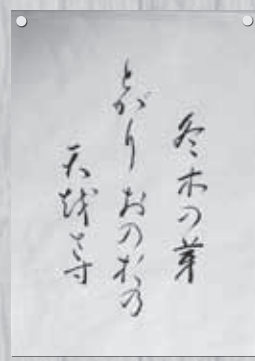 冬木の芽
とがりおのおの
天越さず